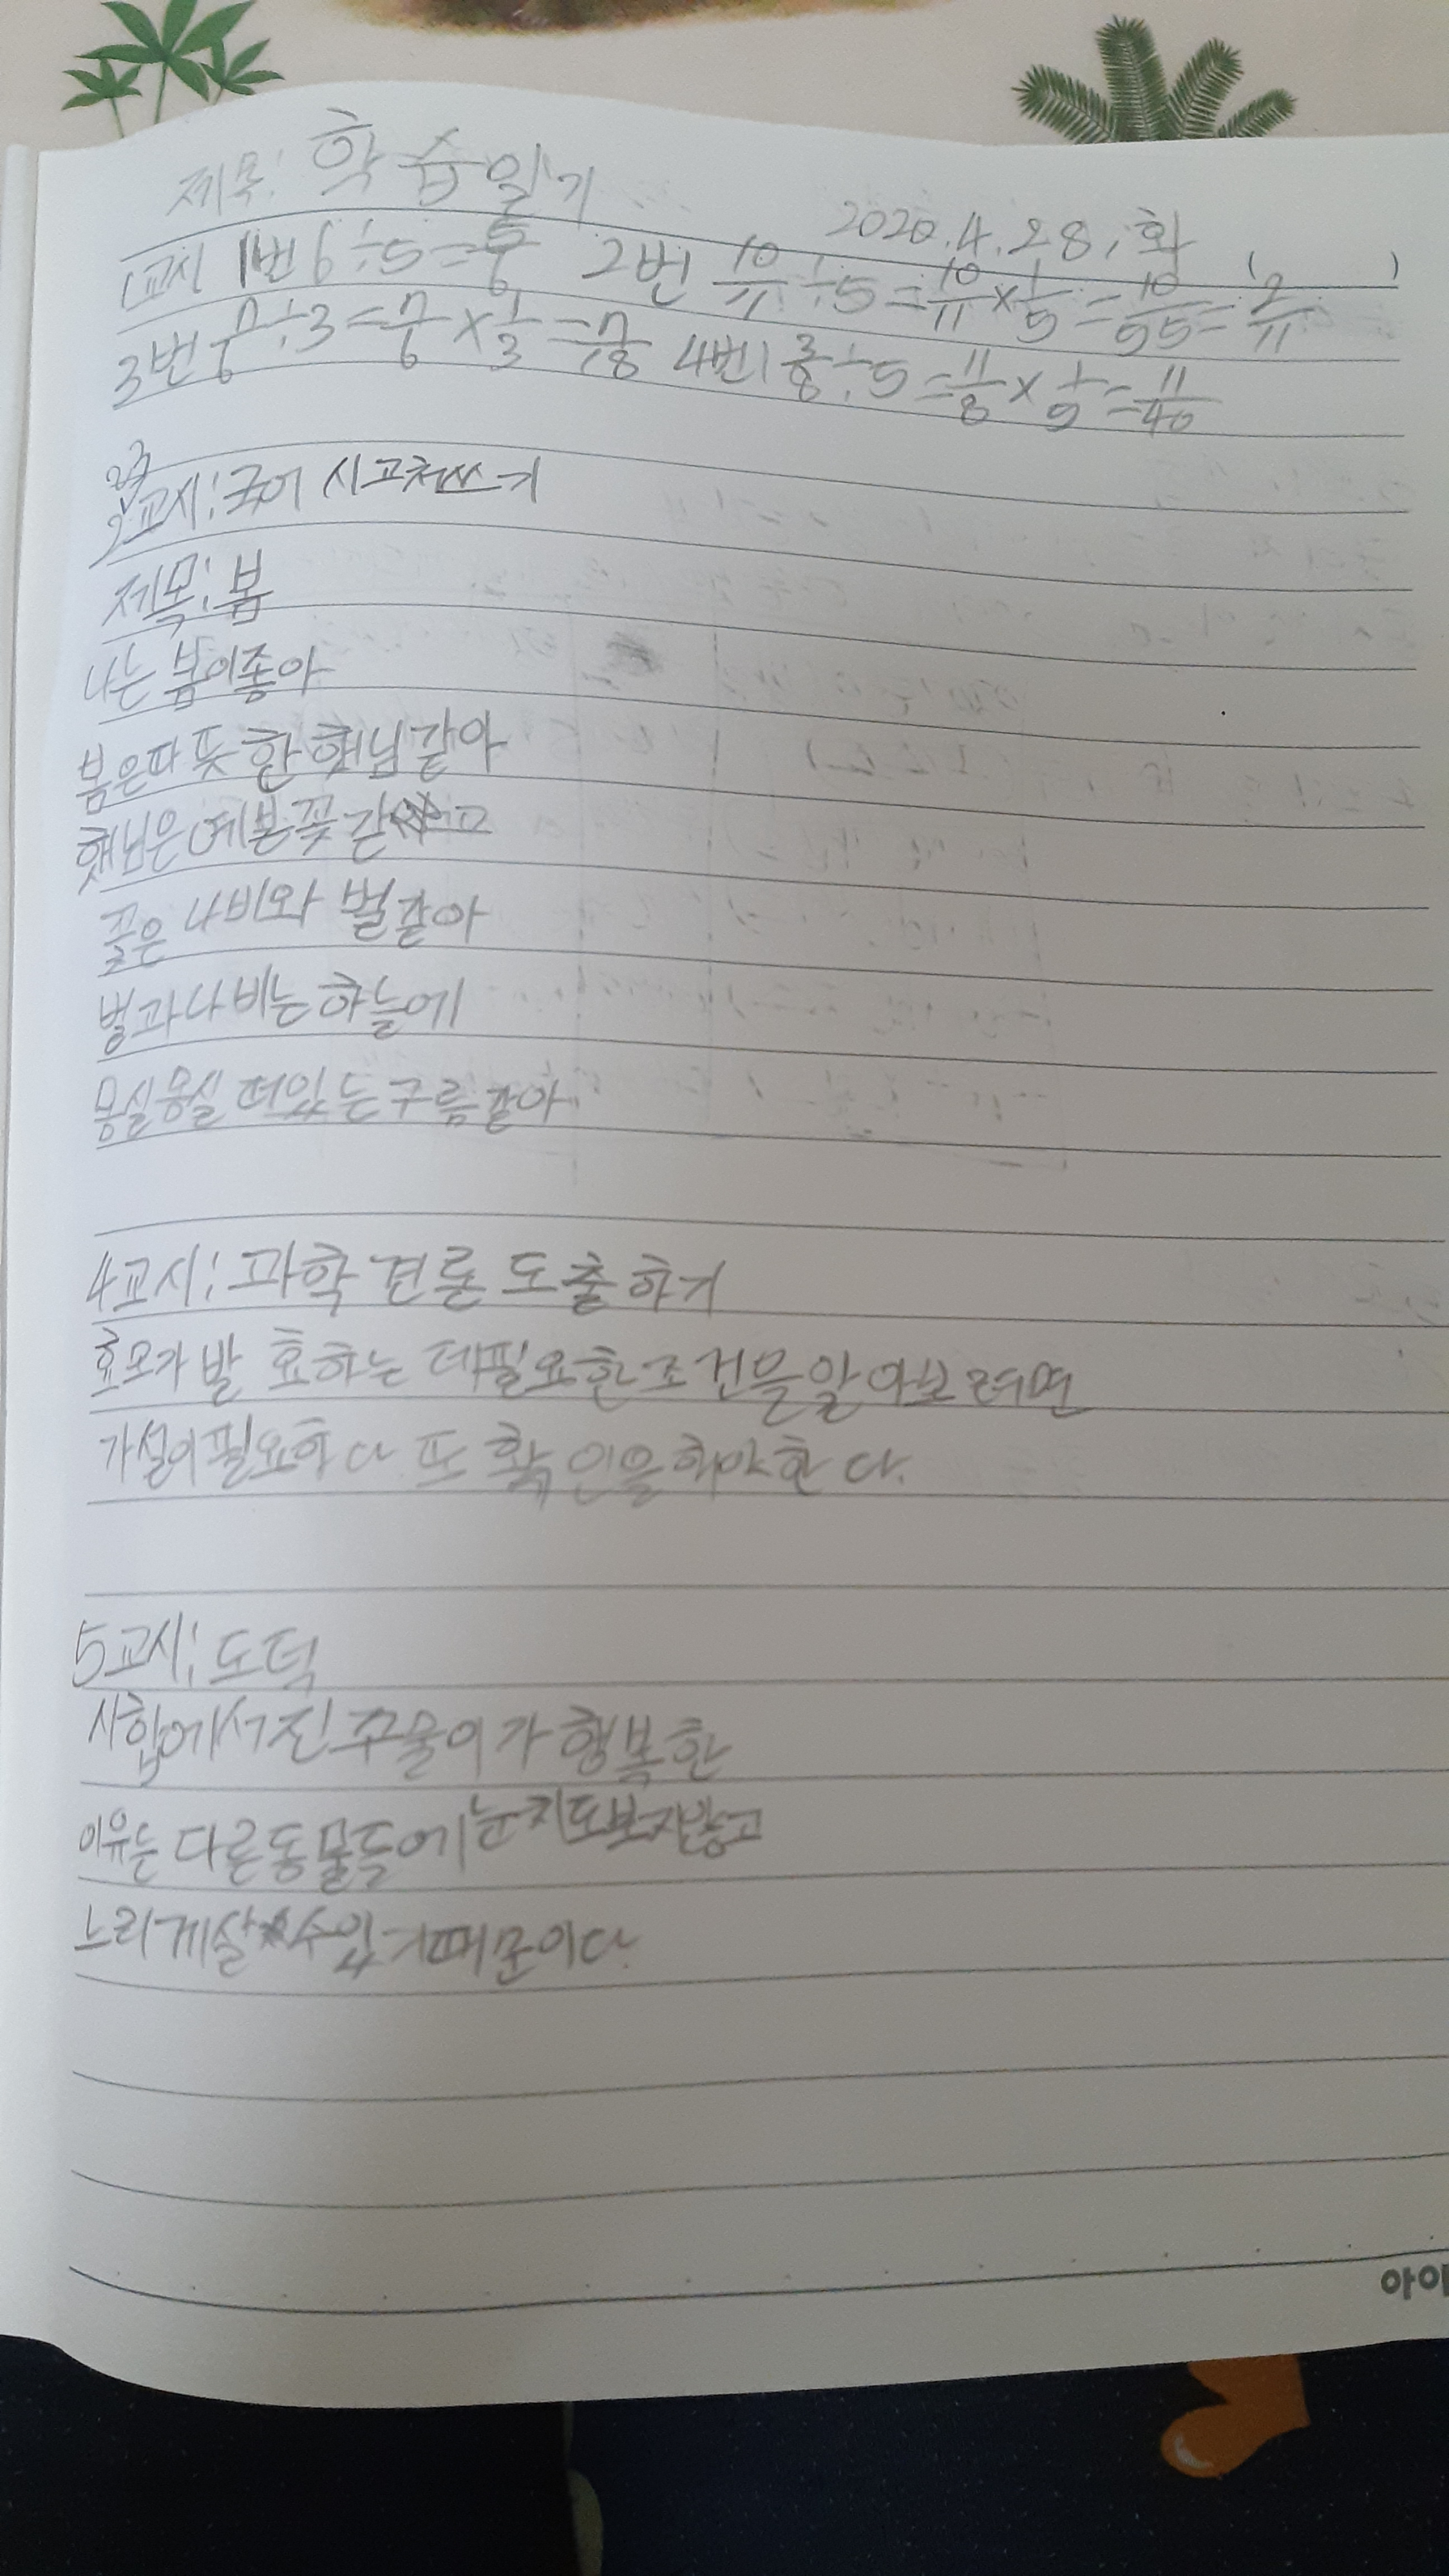 제목: 학습일기
2020.4.28, 화 ( )
1교시 1번 6÷5=5/6 2번 10/11÷5=10/11×1/5=10/55=2/11
3번 7/6÷3=7/6×1/3=7/18 4번 1 3/8÷5=11/8×1/5=11/40
2교시: 국어 시 고쳐쓰기
제목: 봄
나는 봄이좋아
봄은따뜻한 햇님같아
햇님은 예쁜꽃 같고
꽃은 나비와 벌같아
벌과나비는 하늘에
몽실몽실 떠있는 구름같아
4교시: 과학 견론 도출하기
효모가 발효하는 데필요한조건을알아보려면
가설이필요하다 또 확인을해야한다.
5교시: 도덕
시합에서진 꾸물이가 행복한
이유는 다른동물들에눈치도보지않고
느리게살수있기때문이다.
아이